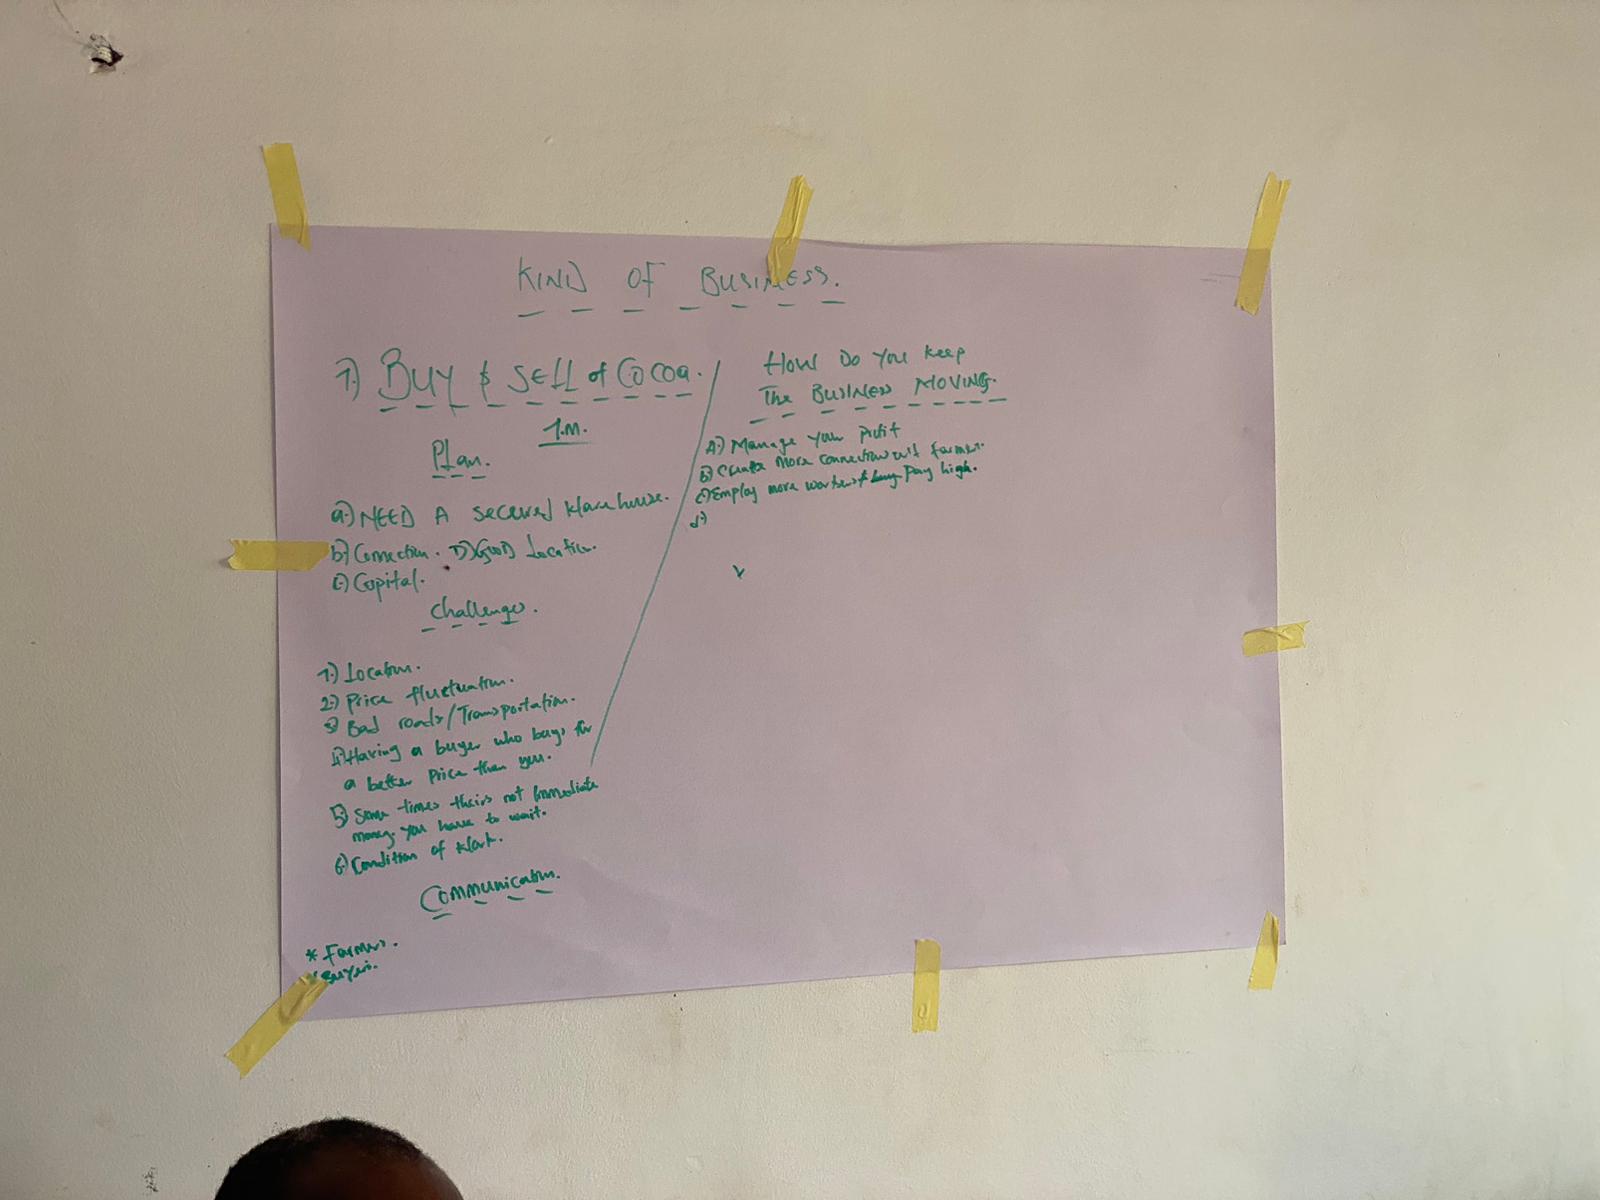 KIND OF BUSINESS.
1.) BUY & SELL of COCOa.
1.M.
Plan.
a.) NEED A secured Warehouse.
b) Connection. D) GOOD Location.
c) Capital.
Challenges.
1.) Location.
2.) Price fluctuation.
3) Bad roads/Transportation.
4) Having a buyer who buys for
a better price than you.
5) Some times theirs not Immediate
money. you have to wait.
6.) Condition of Work.
Communication.
* Farmers.
* Buyers.
How Do You keep
The Business MOVING.
A.) Manage your profit
B) Create More connection wit farmers.
C) Employ more workers & Pay high.
d)